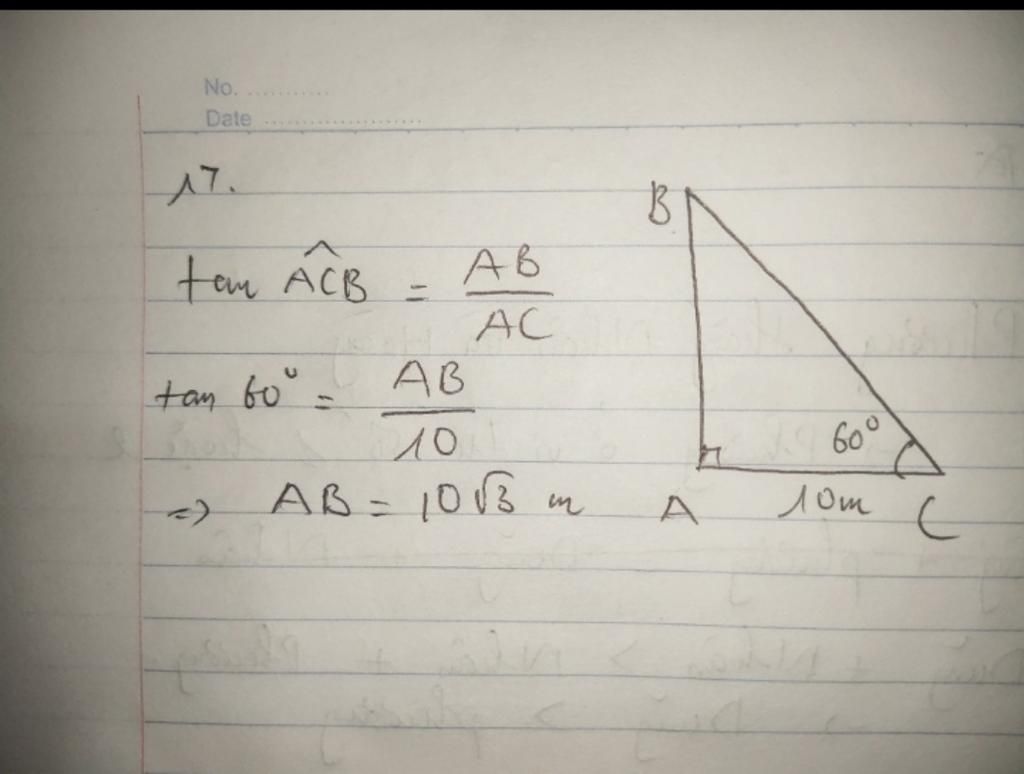 No. ............
Date ......................
17.
tan \widehat{ACB} = \frac{AB}{AC}
tan 60° = \frac{AB}{10}
=> AB = 10√3 m
B
60°
A 10m C